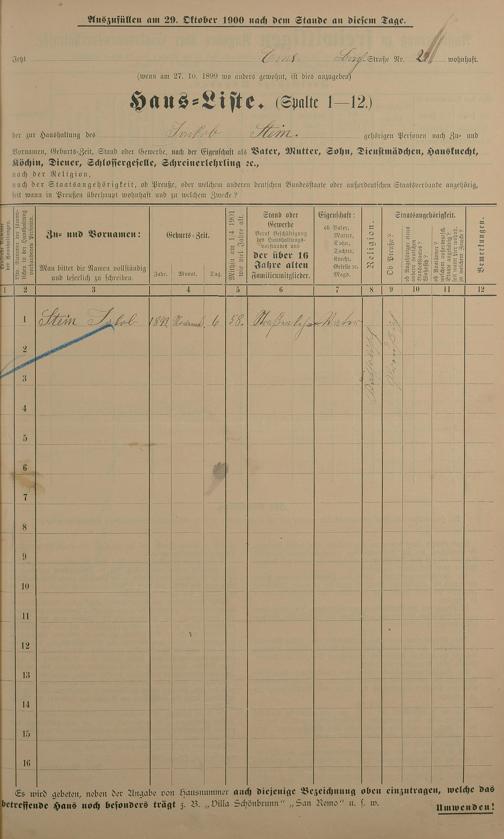 Auszufüllen am 29. Oktober 1900 nach dem Stande an diesem Tage.
Jetzt Ems Straße Nr. wohnhaft.
(wenn am 27. 10. 1899 wo anders gewohnt, ist dies anzugeben)
Haus-Liste. (Spalte 1—12.)
der zur Haushaltung des Jakob Stein. gehörigen Personen nach Zu- und
Vornamen, Geburts-Zeit, Stand oder Gewerbe, nach der Eigenschaft als Vater, Mutter, Sohn, Dienstmädchen, Hausknecht,
Köchin, Diener, Schlossergeselle, Schreinerlehrling ꝛc.,
nach der Religion,
nach der Staatsangehörigkeit, ob Preuße, oder welchem anderen deutschen Bundesstaate oder außerdeutschen Staatsverbande angehörig,
seit wann in Preußen überhaupt wohnhaft und zu welchem Zwecke?
Zu- und Vornamen:
Man bittet die Namen vollständig
und leserlich zu schreiben.
Geburts-Zeit.
Jahr. Monat. Tag.
Mithin am 1/4 1901
wie viel Jahre alt.
Stand oder
Gewerbe
der über 16
Jahre alten
Familienmitglieder.
Eigenschaft:
ob Vater,
Mutter,
Sohn,
Tochter,
Knecht,
Geselle ꝛc.
Magd.
Religion.
Staatsangehörigkeit.
Ob Preuße?
Bemerkungen.
1 2 3 4 5 6 7 8 9 10 11 12
1 Stein Jakob 6 58. Vater
2
3
4
5
6
7
8
9
10
11
12
13
14
15
16
Es wird gebeten, neben der Angabe von Hausnummer auch diejenige Bezeichnung oben einzutragen, welche das
betreffende Haus noch besonders trägt z. B. „Villa Schönbrunn" „San Remo" u. s. w.
Umwenden!